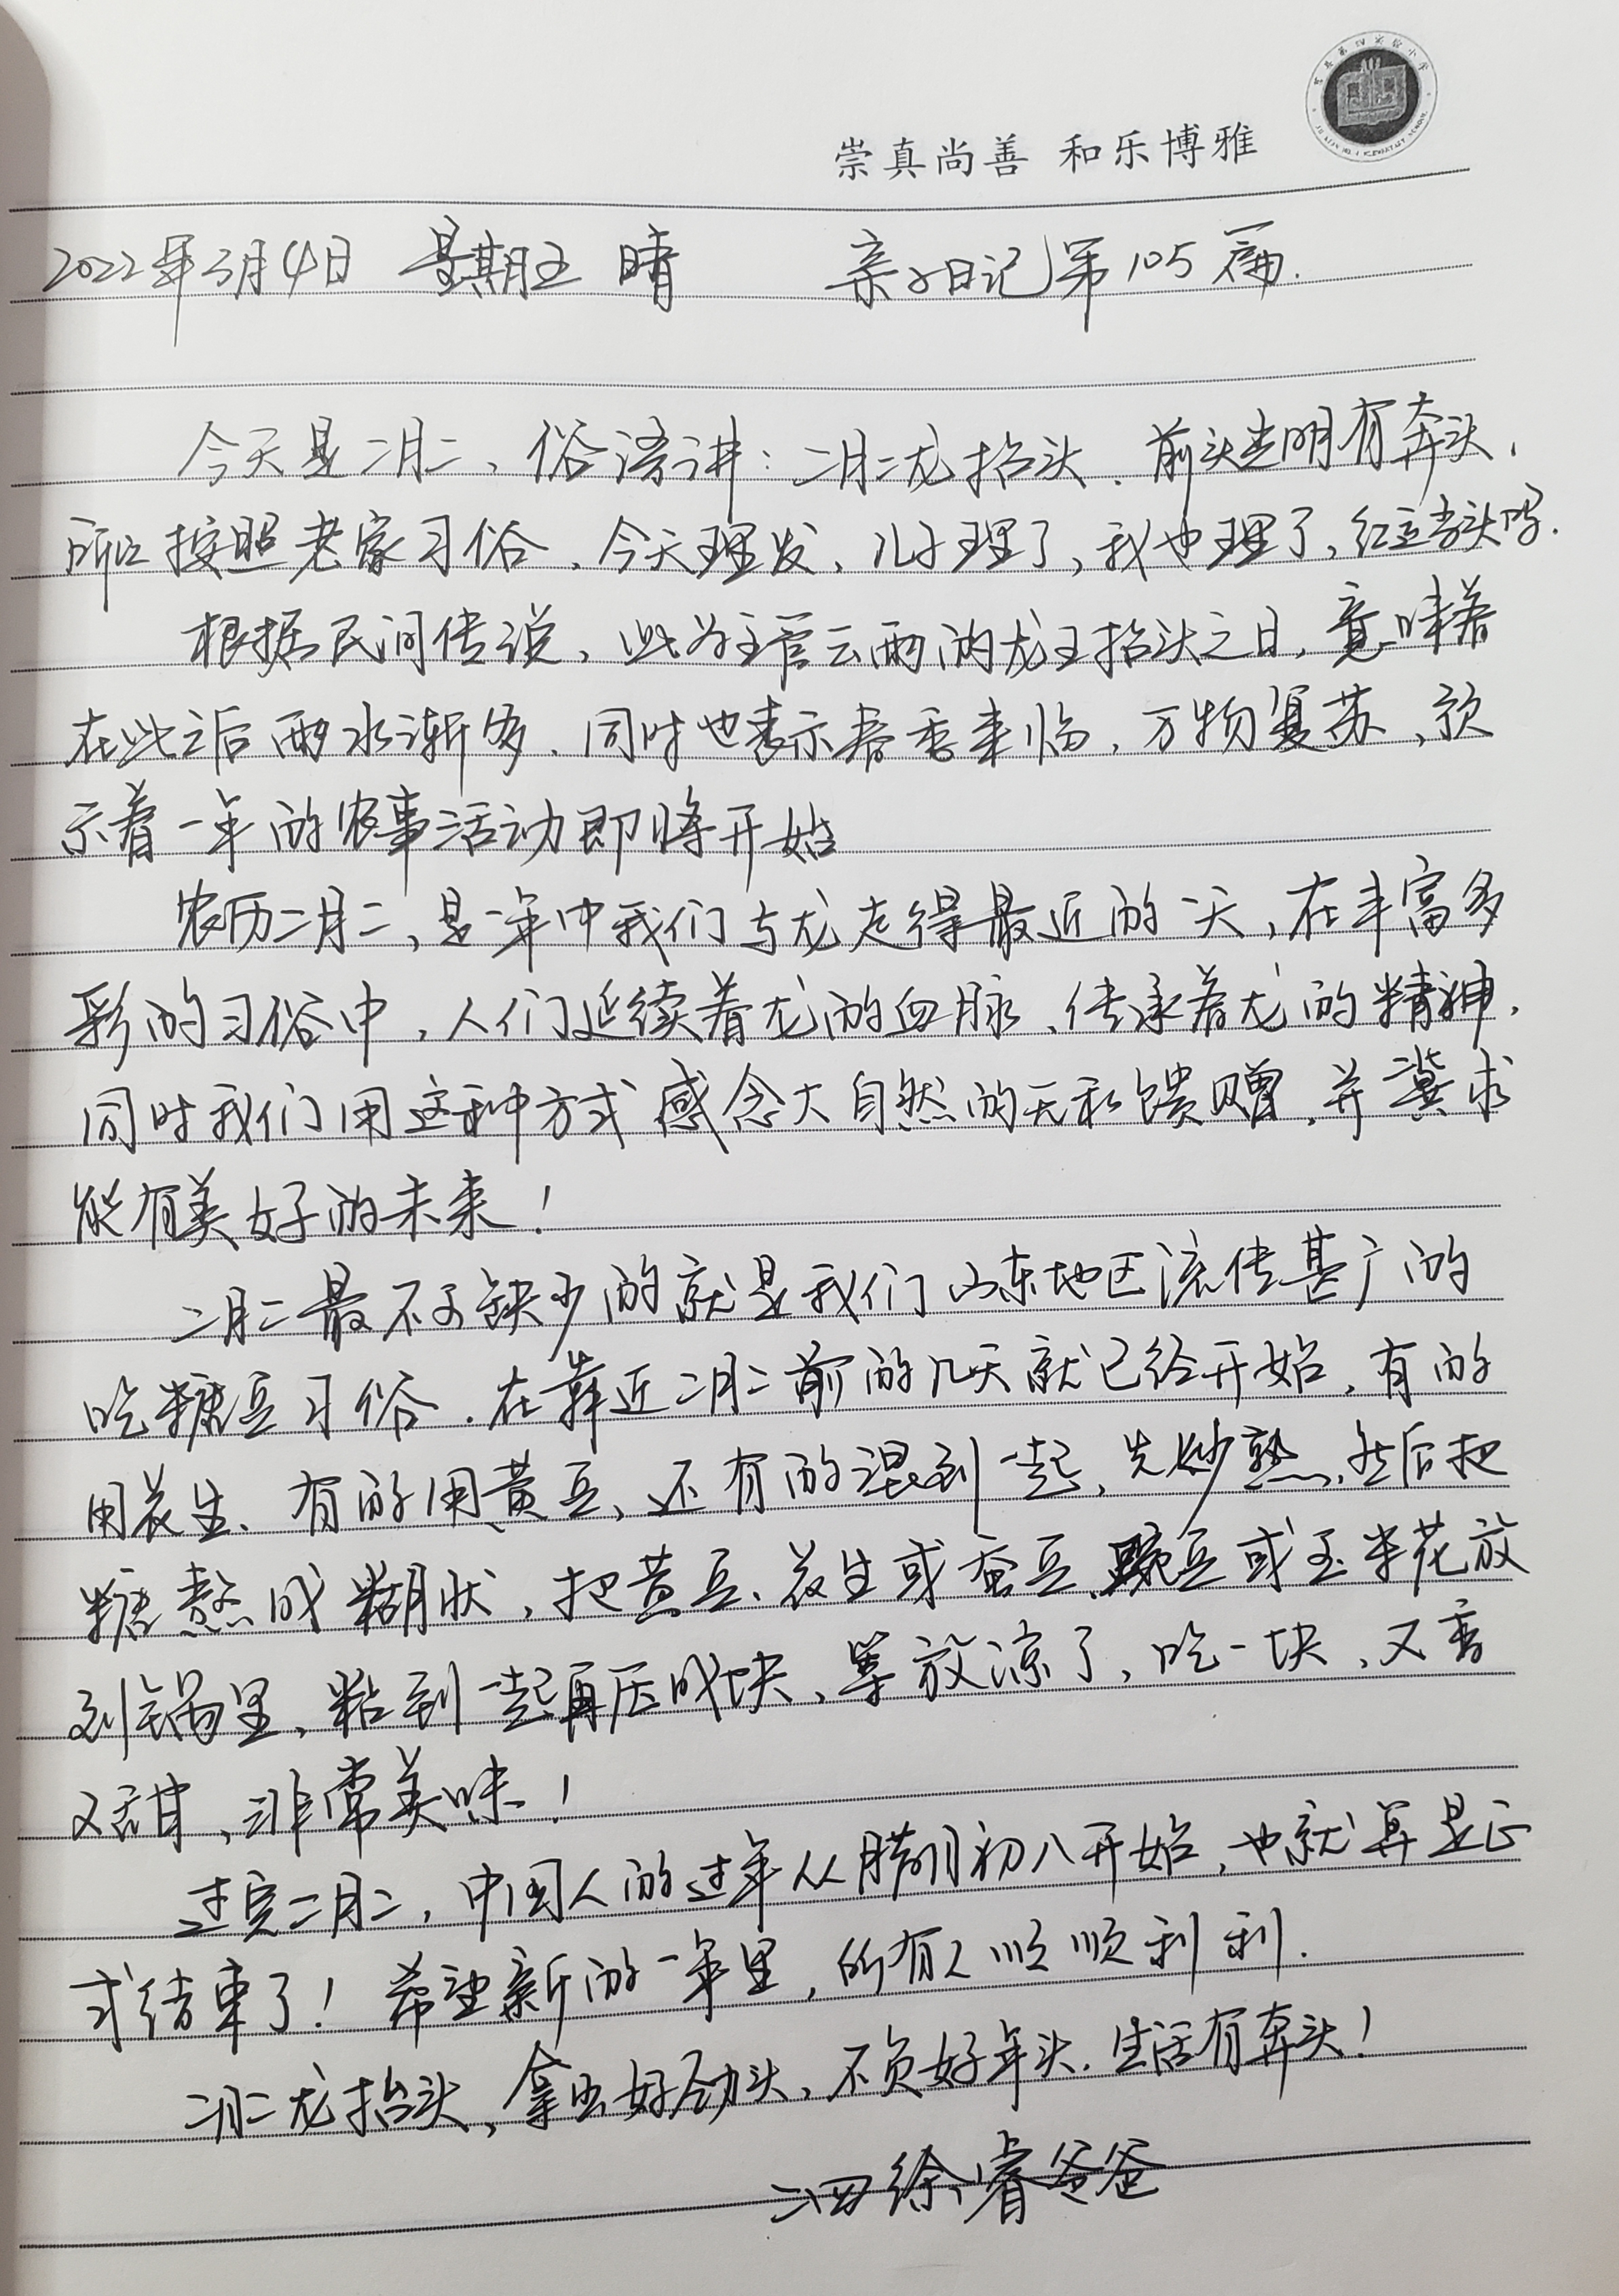 崇真尚善 和乐博雅
2022年3月4日 星期五 晴 亲子日记第105篇.
今天是二月二、俗语讲:二月二龙抬头.前头光明有奔头,
所以按照老家习俗,今天理发,儿子理了,我也理了,
根据民间传说,此为主管云雨的龙王抬头之日,意味着
在此之后雨水渐多.同时也表示春季来临,万物复苏,预
示着一年的农事活动即将开始
农历二月二,是一年中我们与龙走得最近的一天,在丰富多
彩的习俗中,人们延续着龙的血脉、传承着龙的精神,
同时我们用这种方式感念大自然的无私馈赠,并冀求
能有美好的未来!
二月二最不可缺少的就是我们山东地区流传甚广的
吃糖豆习俗.在靠近二月二前的几天就已经开始,有的
用花生、有的用黄豆、还有的混到一起,先炒熟,然后把
糖熬成糊状,把黄豆、花生或蚕豆、豌豆或玉米花放
到锅里,粘到一起再压成块、等放凉了,吃一块,又香
又甜,非常美味!
过完二月二,中国人的过年从腊月初八开始,也就算是正
式结束了!希望新的一年里,所有人顺顺利利.
二月二龙抬头、拿出好劲头、不负好年头.生活有奔头!
二四 徐睿爸爸